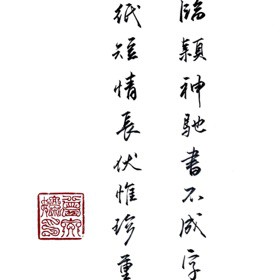 臨穎神馳書不成字
紙短情長伏惟珍重